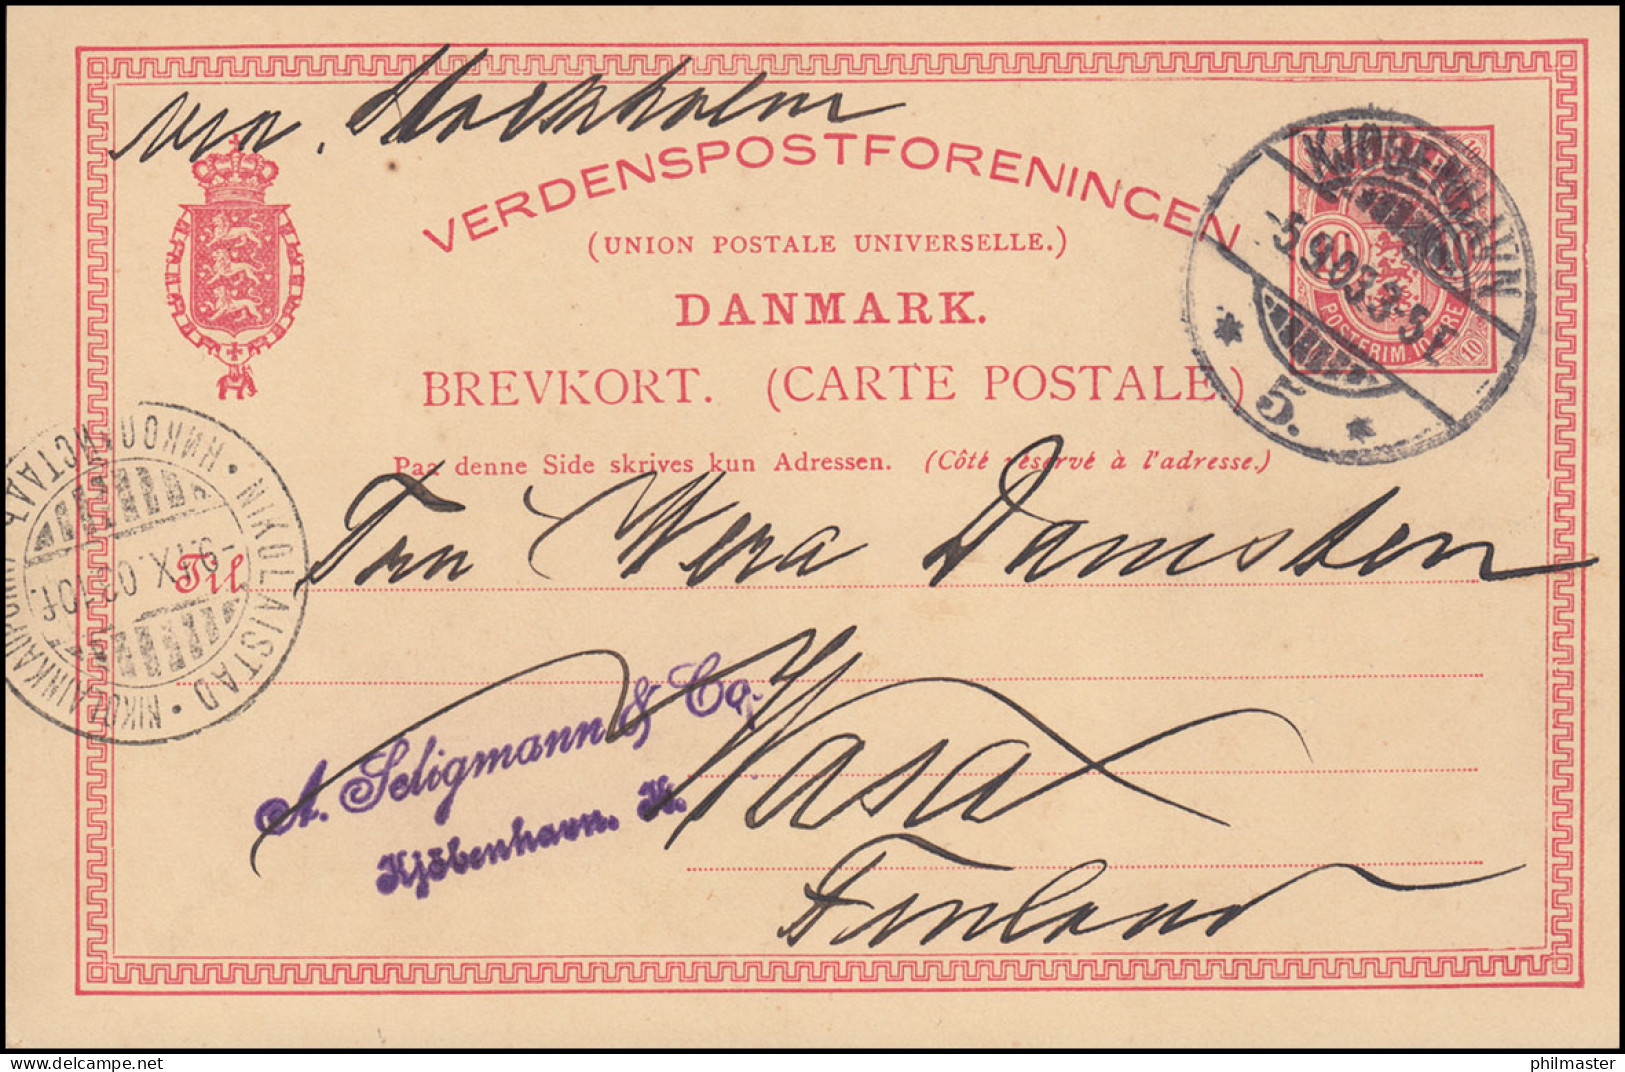 via. Stockholm
VERDENSPOSTFORENINGEN
(UNION POSTALE UNIVERSELLE.)
DANMARK.
BREVKORT. (CARTE POSTALE.)
Paa denne Side skrives kun Adressen. (Côté réservé à l'adresse.)
KJØBENHAVN
-5.9.03.3-5 E
5.
10 10
POSTFRIM. 10 ØRE
10
Til Fru Wera Damsten
NIKOLAISTAD • NIKOLAINKAUPUNKI
НИКОЛАИСТАДЪ
-9.IX.03.10 f.
A. Seligmann & Co.
Kjöbenhavn. K.
Wasa
Finland
philmaster